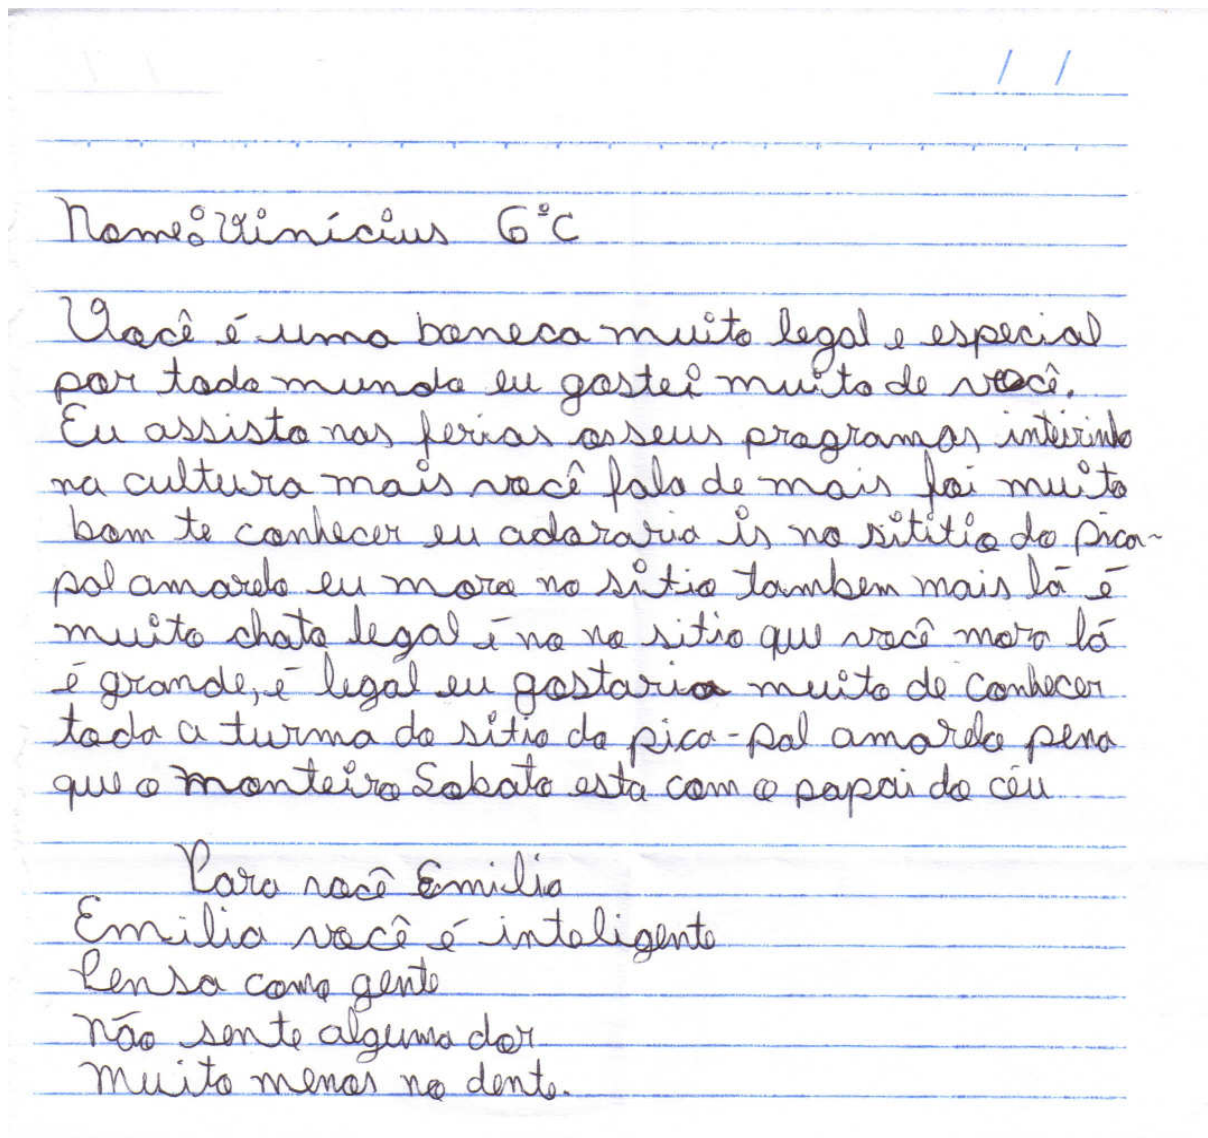 Nome: Vinícius 6ºC
Você é uma boneca muito legal e especial
por todo mundo eu gostei muito de você.
Eu assisto nas ferias os seus programas inteirinho
na cultura mais você fala de mais foi muito
bom te conhecer eu adoraria is no sititio do pica-
pal amarelo eu moro no sitio tambem mais lá é
muito chato legal é no no sitio que você mora lá
é grande, é legal eu gostaria muito de conhecer
toda a turma do sitio do pica-pal amarelo pena
que o monteiro Lobato esta com o papai do céu
Para você Emilia
Emilia você é inteligente
Pensa como gente
não sente alguma dor
muito menos no dente.